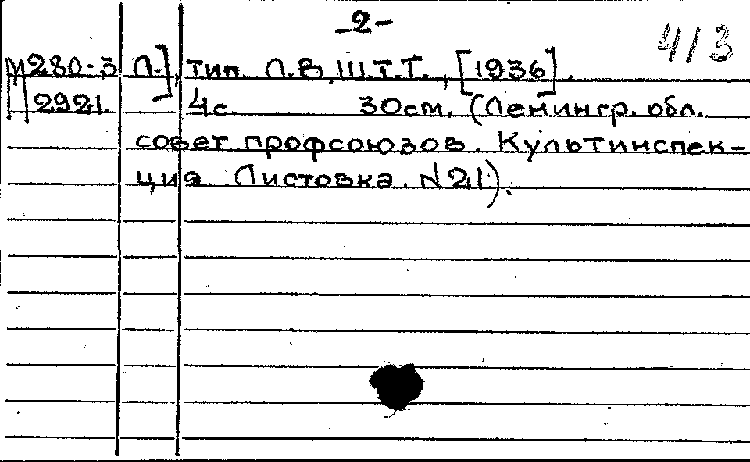 -2-
413
М280-3 Л.], тип. Л.В.Ш.Т.Т., [1936].
2921 4с. 30см. (Ленингр. обл.
совет профсоюзов. Культинспек-
ция Листовка. №21).